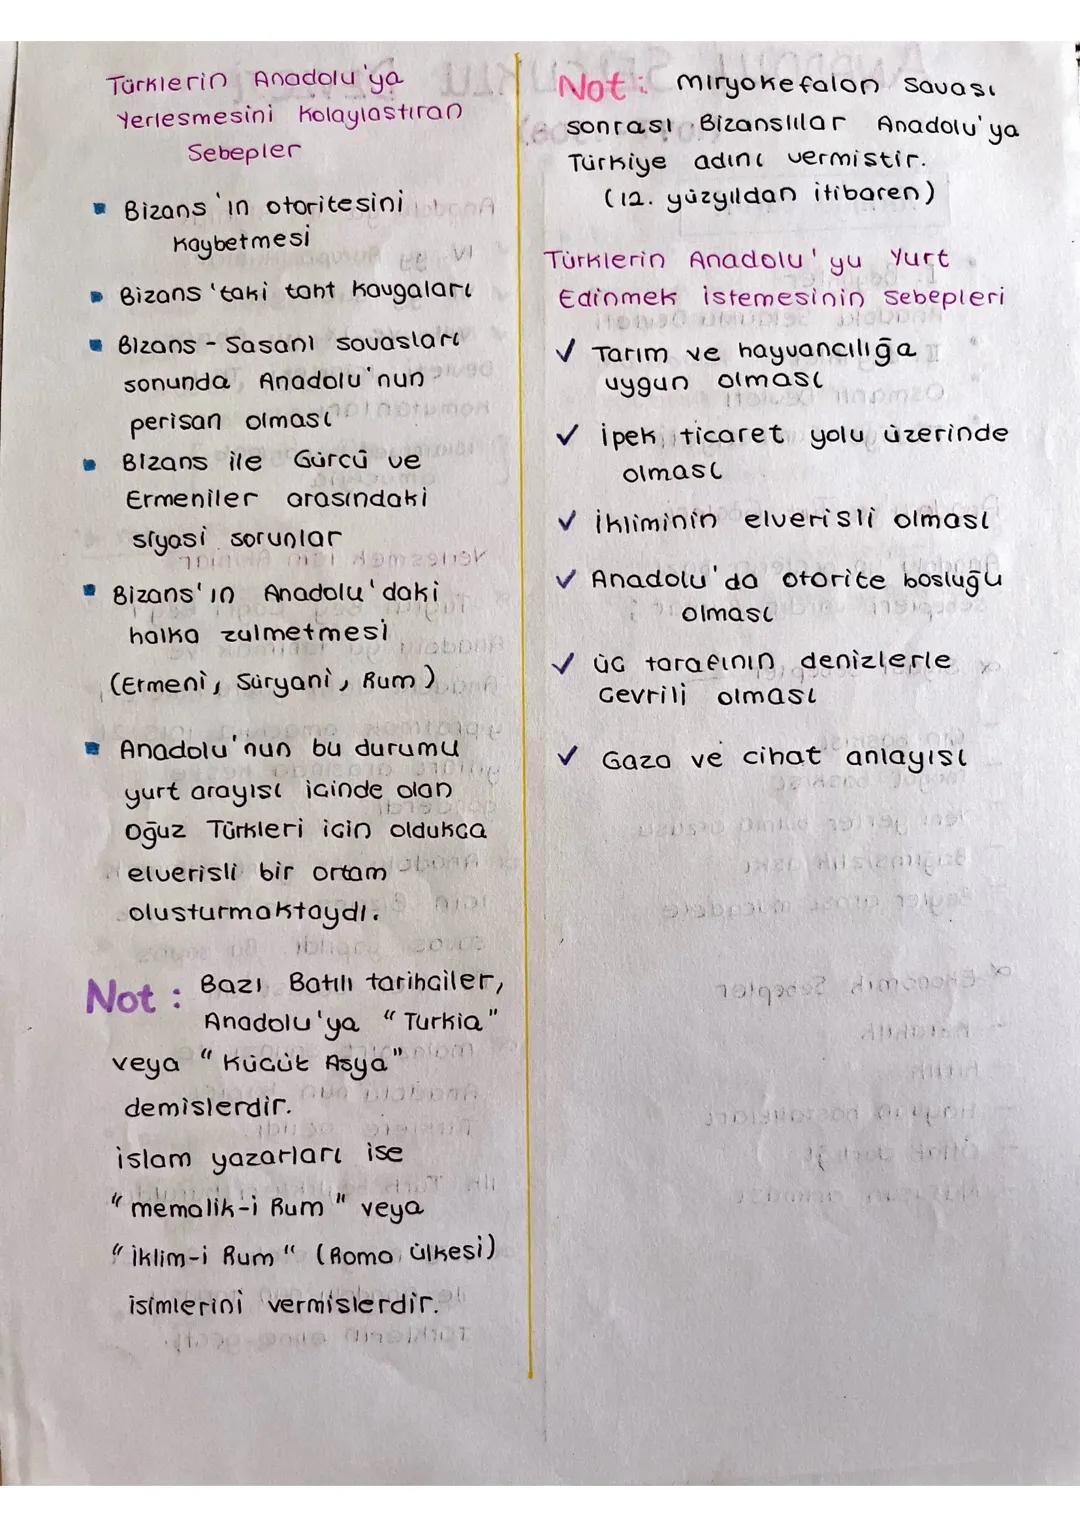 Türklerin Anadolu'ya
Yerlesmesini Kolaylastıran
Sebepler
Bizans'ın otoritesini
Kaybetmesi
Bizans'taki taht Kavgaları
Bizans - Sasani savasları
sonunda Anadolu'nun
perisan olması
Bizans ile Gürcü ve
Ermeniler arasındaki
siyasi sorunlar
Bizans'ın Anadolu'daki
halka zulmetmesi
(Ermeni, Süryani, Rum)
Anadolu'nun bu durumu
yurt arayısı icinde olan
Oğuz Türkleri icin oldukca
elverisli bir ortam
olusturmaktaydı.
Not: Bazı Batılı tarihciler,
Anadolu'ya "Turkia"
veya "Kücük Asya"
demislerdir.
islam yazarları ise
"memalik-i Rum" veya
"iklim-i Rum" (Roma ülkesi)
isimlerini vermislerdir.
Not: Miryokefalon Savası
sonrası Bizanslılar Anadolu'ya
Türkiye adını vermistir.
(12. yüzyıldan itibaren)
Türklerin Anadolu'yu Yurt
Edinmek istemesinin sebepleri
✓ Tarım ve hayvancılığa
uygun olması
✓ ipek ticaret yolu üzerinde
olması
✓ ikliminin elverisli olması
✓ Anadolu'da otorite boslugu
olması
✓ üc tarafının denizlerle
cevrili olması
✓ Gaza ve cihat anlayısı